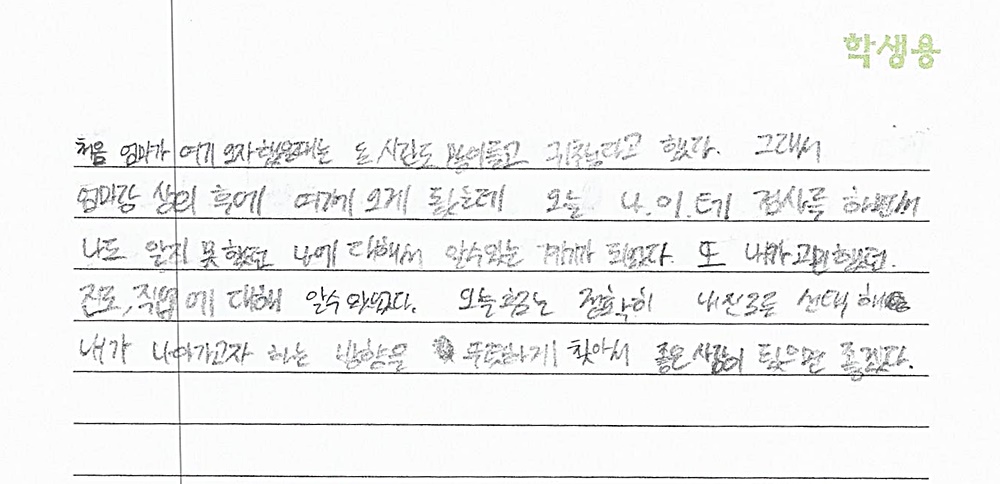 학생용
처음 엄마가 여기 오자했을때는 돈 시간도 많이들고 귀찮다고 했다. 그래서
엄마랑 상의 후에 여기에 오게 됐는데 오늘 나.이.테 검사를 하면서
나도 알지 못했던 나에 대해서 알수있는 계기가 되었다. 또 내가 고민했던.
진로, 직업에 대해 알수 있었다. 오늘 정확히 내진로를 선택해
내가 나아가고자 하는 방향을 뚜렷하게 찾아서 좋은 사람이 됐으면 좋겠다.